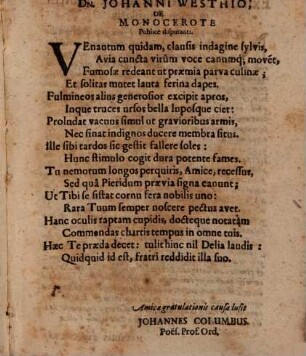 DN. JOHANNI WESTHIO,
DE
MONOCEROTE
Publicè disputanti.
VEnantum quidam, clausis indagine sylvis,
Avia cuncta virûm voce canumq; movêt,
Fumosæ redeant ut præmia parva culinæ;
Et solitas mutet lauta ferina dapes.
Fulmineos alius generosior excipit apros,
Inque truces ursos bella suposque ciet:
Proludat vacuus simul ut gravioribus armis,
Nec sinat indignos ducere membra situs.
Ille sibi tardos sic gestit fallere soles:
Hunc stimulo cogit dura potente fames.
Tu nemorum longos perquiris, Amice, recessus,
Sed quâ Pieridum prævia signa canunt;
Ut Tibi se sistat cornu fera nobilis uno:
Rara Tuum semper noscere pectus avet.
Hanc oculis raptam cupidis, docteque notatam
Commendas chartis tempus in omne tuis.
Hæc Te præda decet: tulit hinc nil Delia laudis:
Quidquid id est, fratri reddidit illa suo.
Amicæ gratulationis causâ lusit
JOHANNES COLUMBUS.
Poës. Prof. Ord.